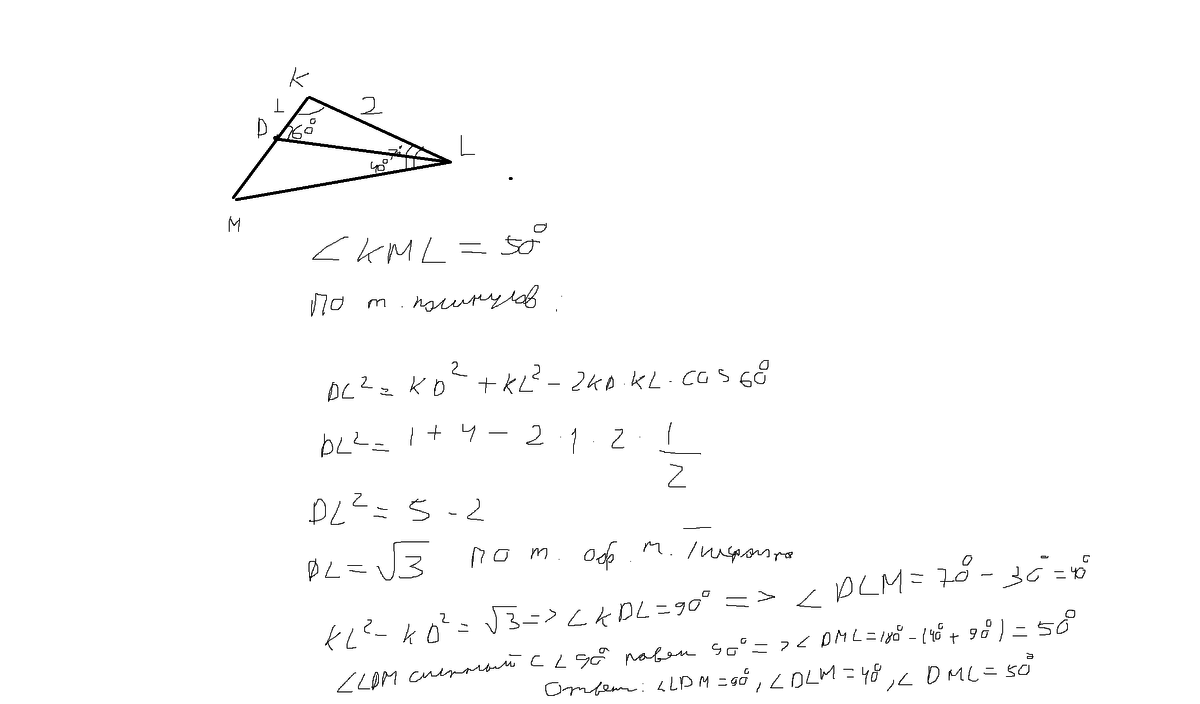 K
1
2
D
60°
L
40°
M
∠KML = 50°
По т. косинусов:
DL² = KD² + KL² - 2KD·KL·cos60°
DL² = 1 + 4 - 2·1·2·1/2
DL² = 5 - 2
DL = √3 по т. обр. т. Пифагора
KL² - KD² = √3 => ∠KDL = 90° => ∠DLM = 70° - 30° = 40°
∠LDM смежный с ∠90° равен 90° => ∠DML = 180° - (40° + 90°) = 50°
Ответ: ∠LDM = 90°, ∠DLM = 40°, ∠DML = 50°